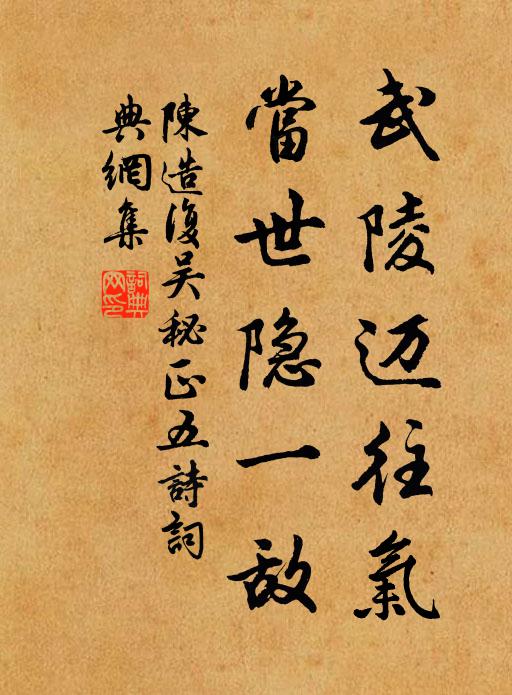 武陵迈往氣
當世隐一敌
陳造復吴秘正五詩詞
典網集
詞典网印